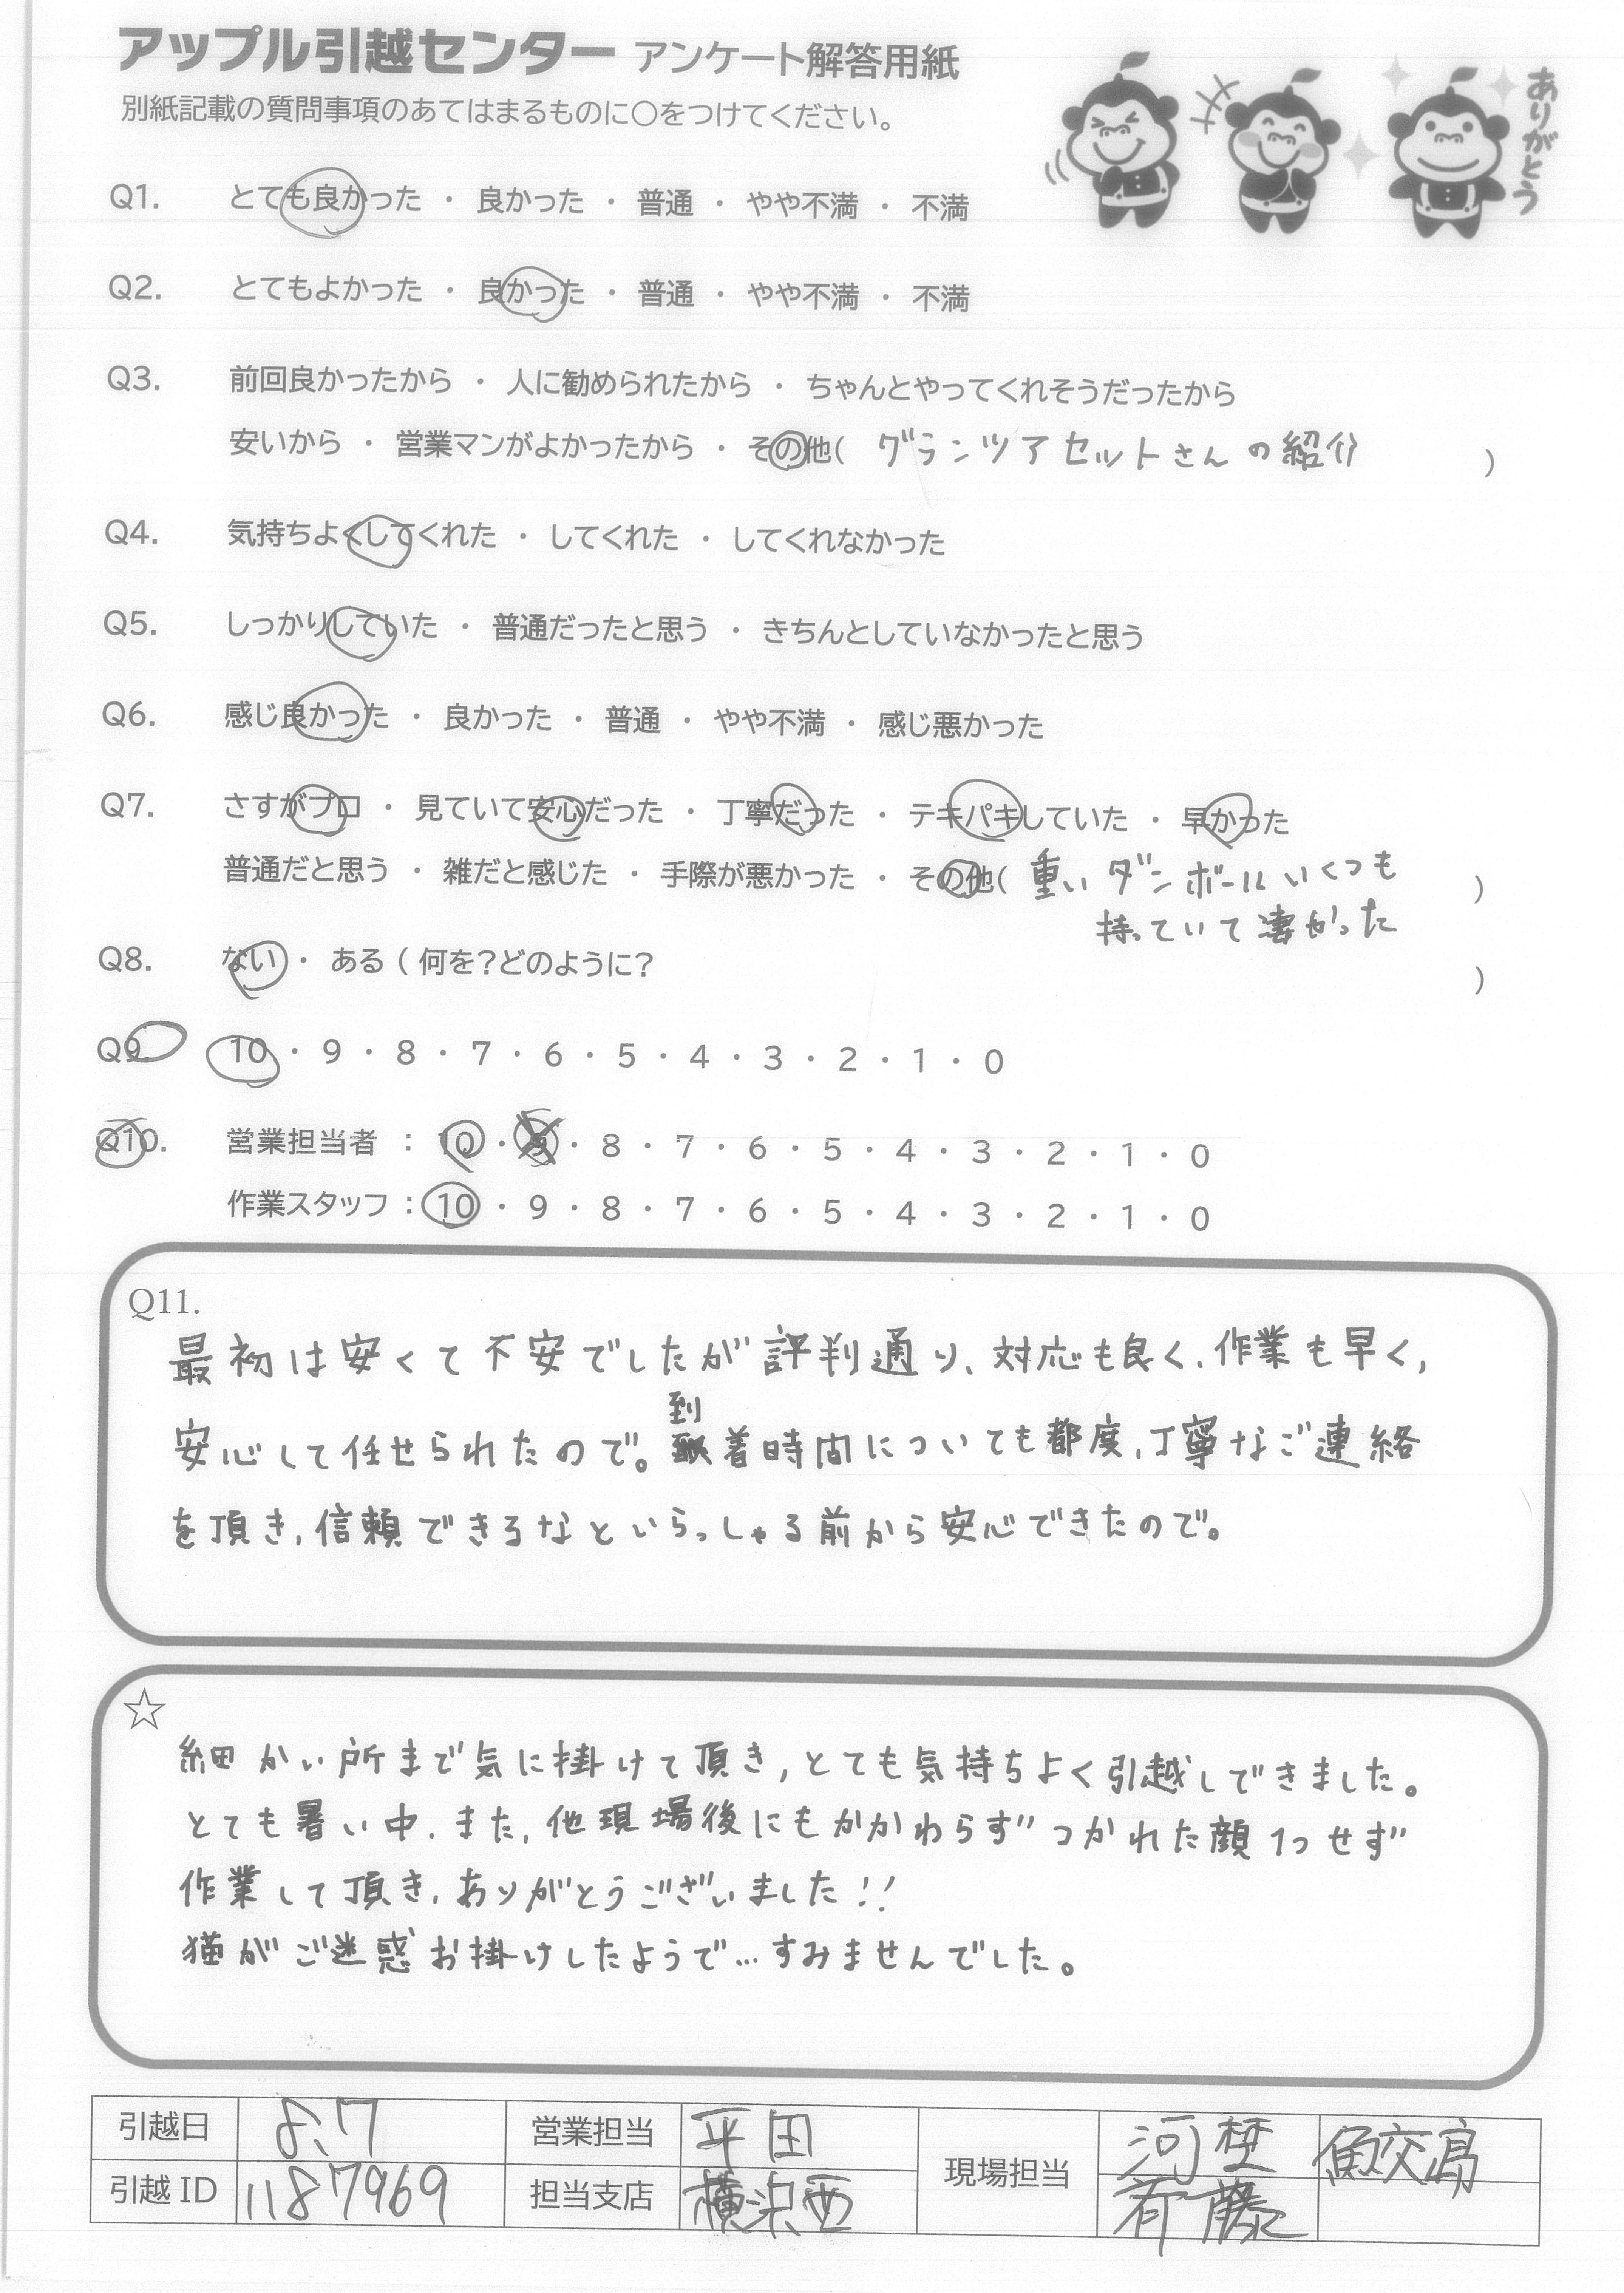 アップル引越センター アンケート解答用紙
別紙記載の質問事項のあてはまるものに○をつけてください。
ありがとう
Q1. とても良かった ・ 良かった ・ 普通 ・ やや不満 ・ 不満
Q2. とてもよかった ・ 良かった ・ 普通 ・ やや不満 ・ 不満
Q3. 前回良かったから ・ 人に勧められたから ・ ちゃんとやってくれそうだったから
安いから ・ 営業マンがよかったから ・ その他( グランツアセットさんの紹介 )
Q4. 気持ちよくしてくれた ・ してくれた ・ してくれなかった
Q5. しっかりしていた ・ 普通だったと思う ・ きちんとしていなかったと思う
Q6. 感じ良かった ・ 良かった ・ 普通 ・ やや不満 ・ 感じ悪かった
Q7. さすがプロ ・ 見ていて安心だった ・ 丁寧だった ・ テキパキしていた ・ 早かった
普通だと思う ・ 雑だと感じた ・ 手際が悪かった ・ その他( 重いダンボールいくつも )
持っていて凄かった
Q8. ない ・ ある ( 何を?どのように? )
Q9. 10 ・ 9 ・ 8 ・ 7 ・ 6 ・ 5 ・ 4 ・ 3 ・ 2 ・ 1 ・ 0
Q10. 営業担当者 : 10 ・ 9 ・ 8 ・ 7 ・ 6 ・ 5 ・ 4 ・ 3 ・ 2 ・ 1 ・ 0
作業スタッフ : 10 ・ 9 ・ 8 ・ 7 ・ 6 ・ 5 ・ 4 ・ 3 ・ 2 ・ 1 ・ 0
Q11.
最初は安くて不安でしたが評判通り、対応も良く、作業も早く、
安心して任せられたので。到着時間についても都度、丁寧なご連絡
を頂き、信頼できるなといらっしゃる前から安心できたので。
☆
細かい所まで気に掛けて頂き、とても気持ちよく引越しできました。
とても暑い中、また、他現場後にもかかわらずつかれた顔1つせず
作業して頂き、ありがとうございました!!
猫がご迷惑お掛けしたようで…すみませんでした。
引越日 8.7 営業担当 平田 現場担当 河埜 鮫島
引越ID 1187969 担当支店 横浜西 斉藤